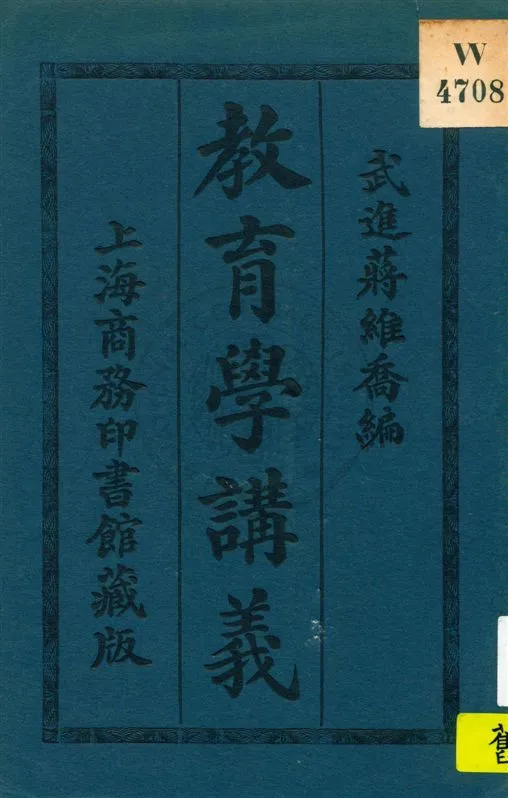 W
4708
武進蔣維喬編
教育學講義
上海商務印書館藏版
舊